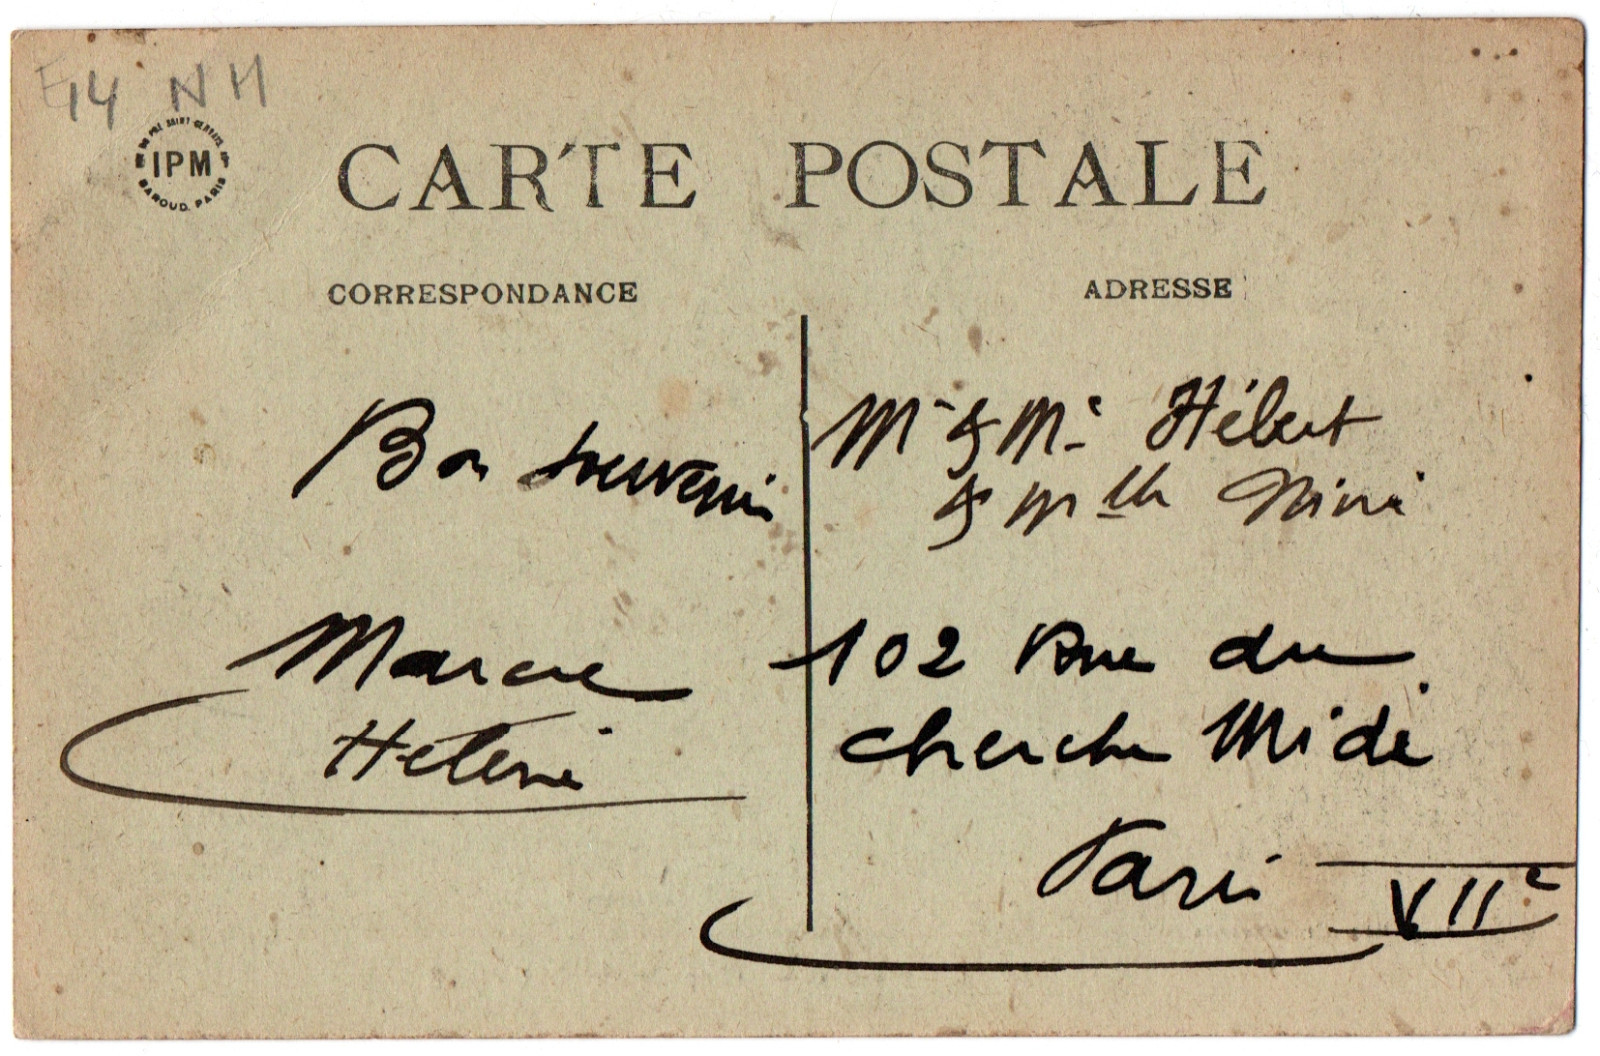 14 NH
IPM
BAROUD. PARIS
CARTE POSTALE
CORRESPONDANCE
Bon souvenir
Hélène
ADRESSE
Mr & Me Hébert
& Mlle Nini
102 Rue du
cherche Midi
Paris VIIe